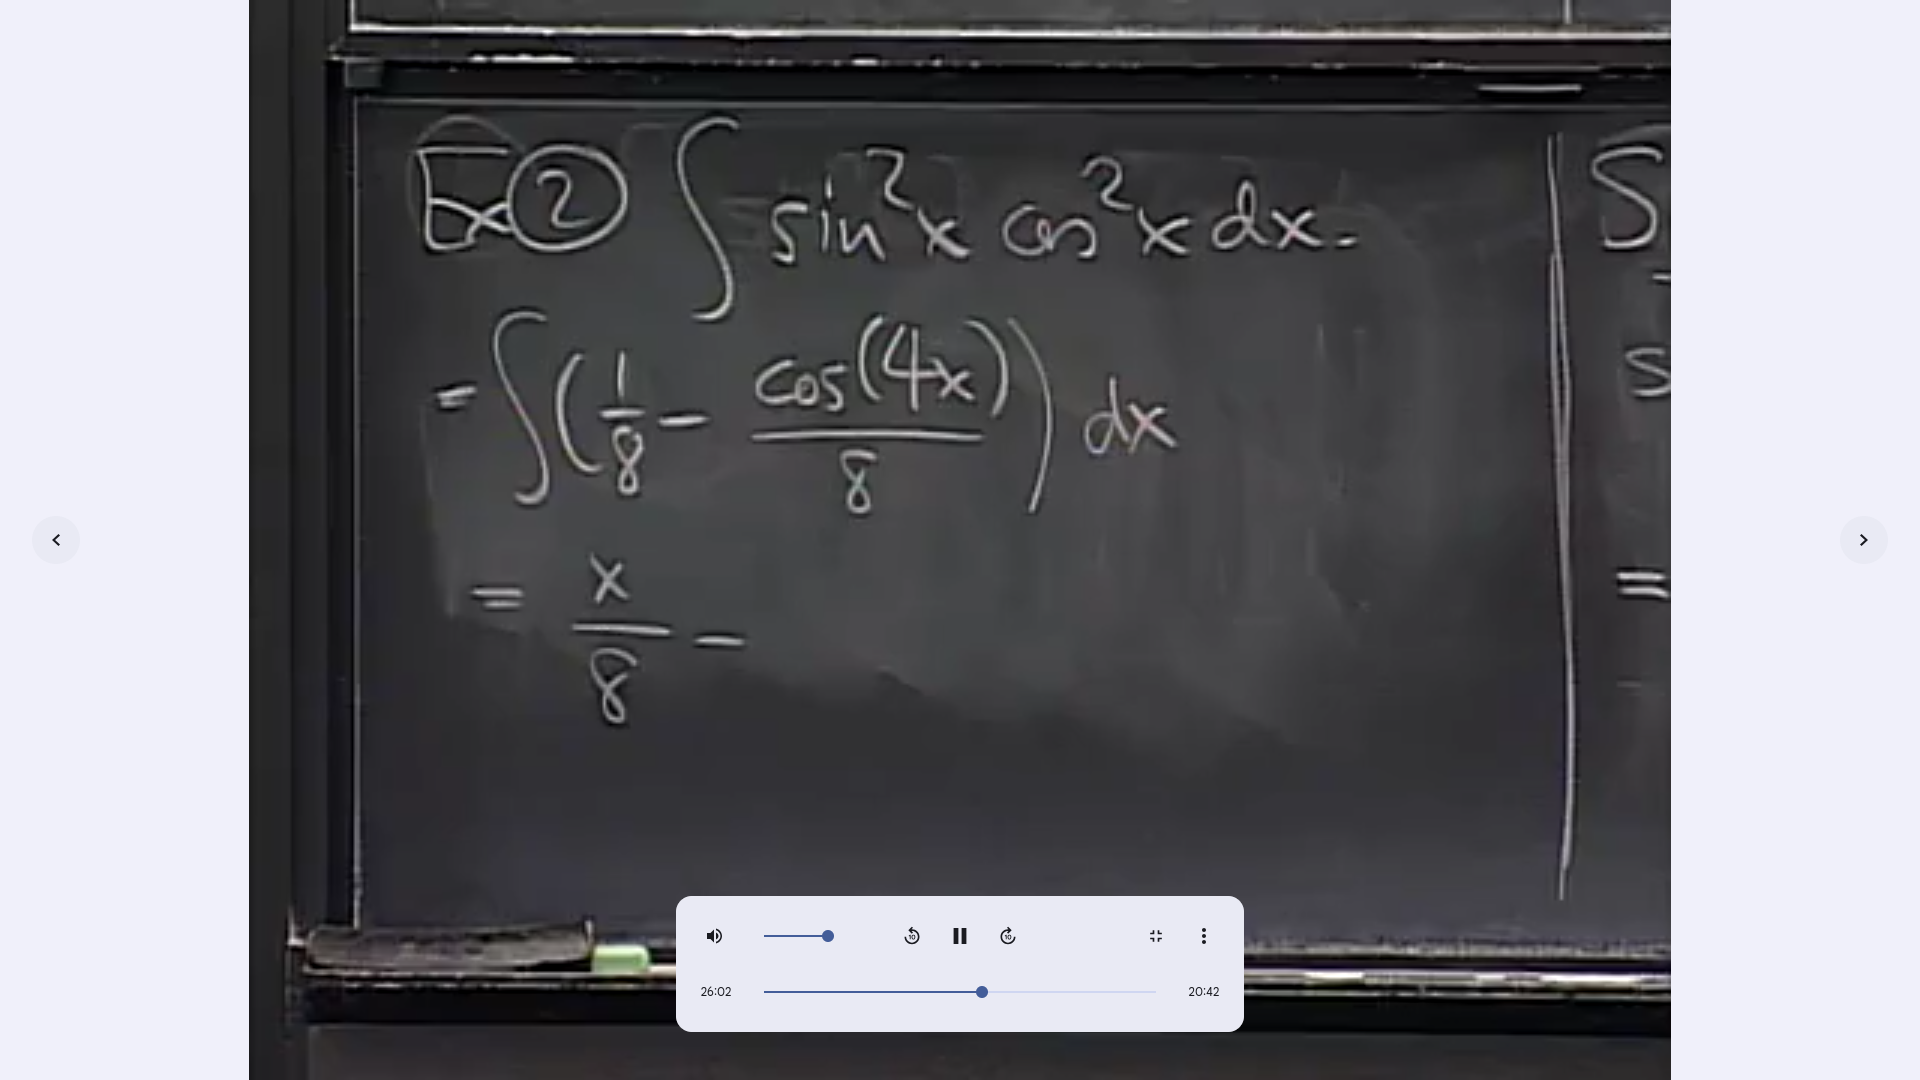 Ex ② ∫ sin²x cos²x dx.
= ∫ (1/8 − cos(4x)/8) dx
= x/8 −
S
s
=
26:02
20:42